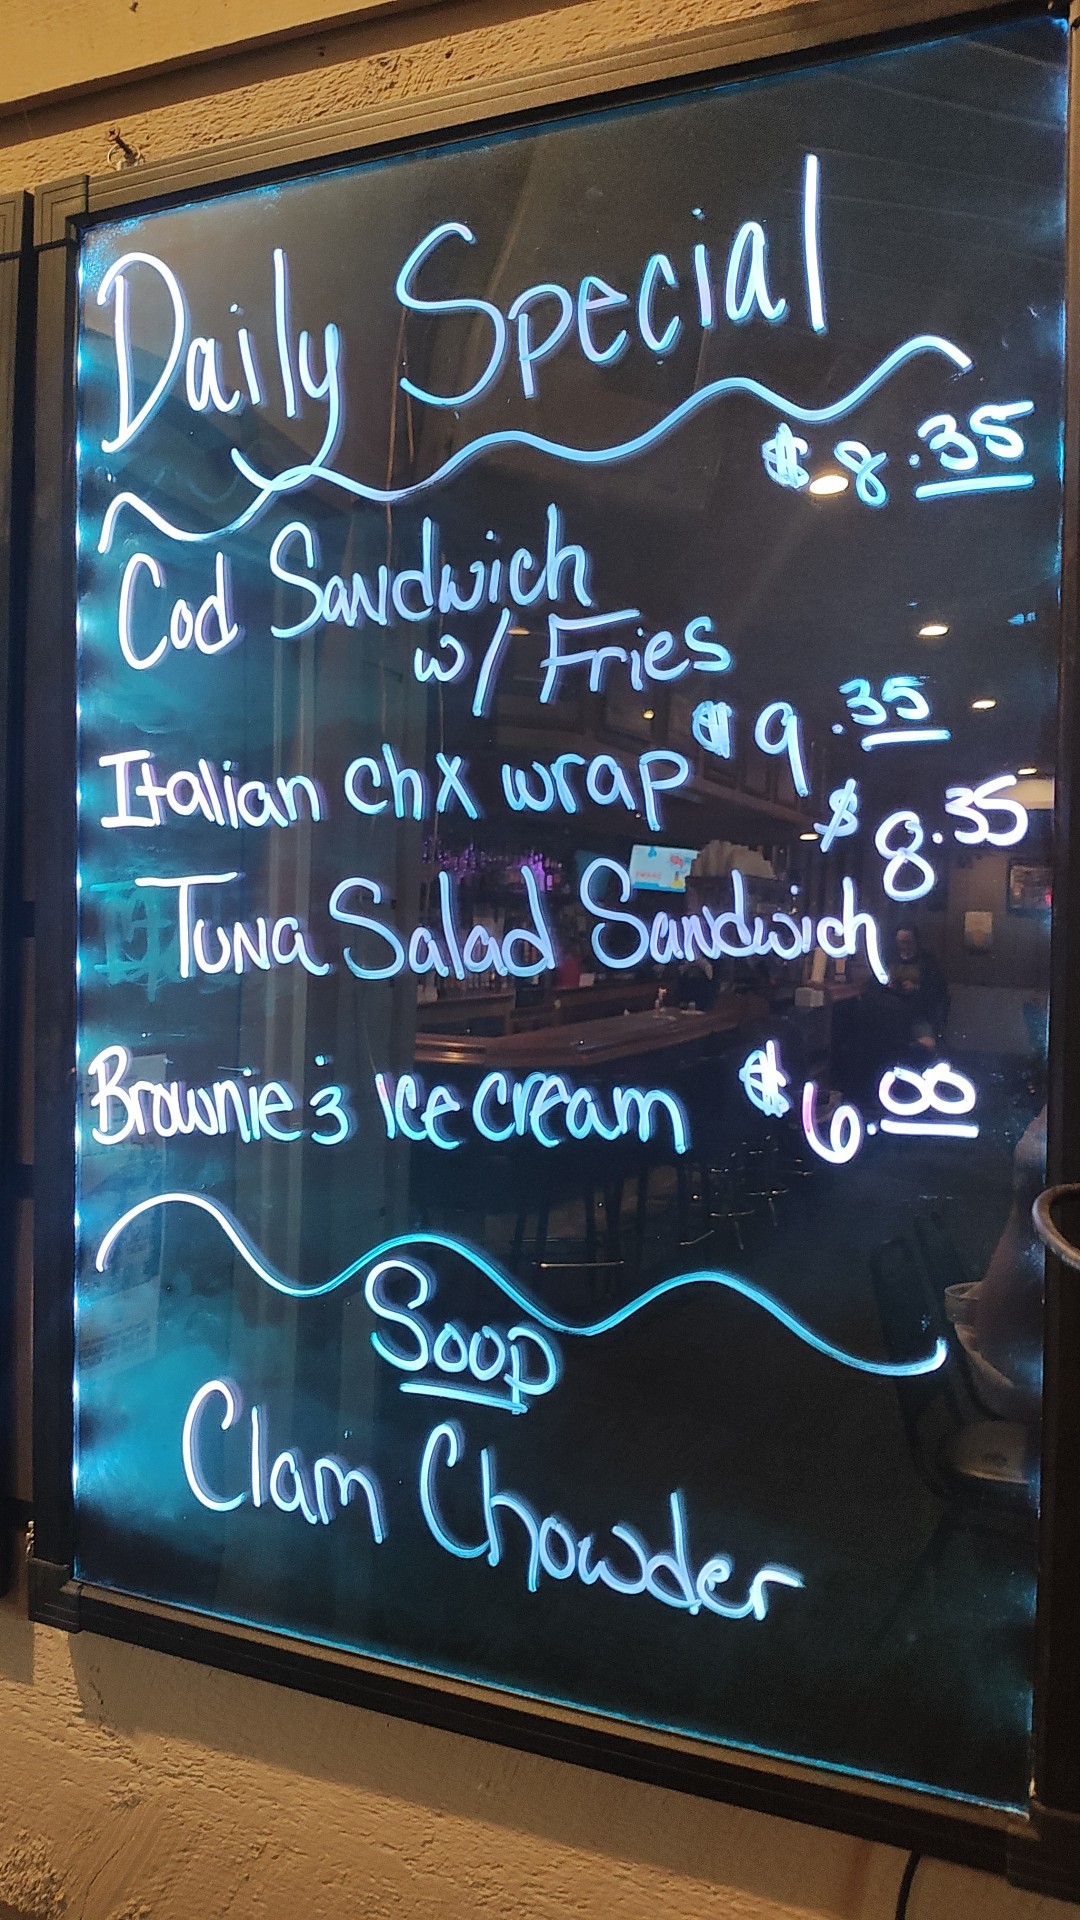 Daily Special
$8.35
Cod Sandwich
w/ Fries
$9.35
Italian chx wrap
$8.35
Tuna Salad Sandwich
Brownie & Ice cream $6.00
Soup
Clam Chowder